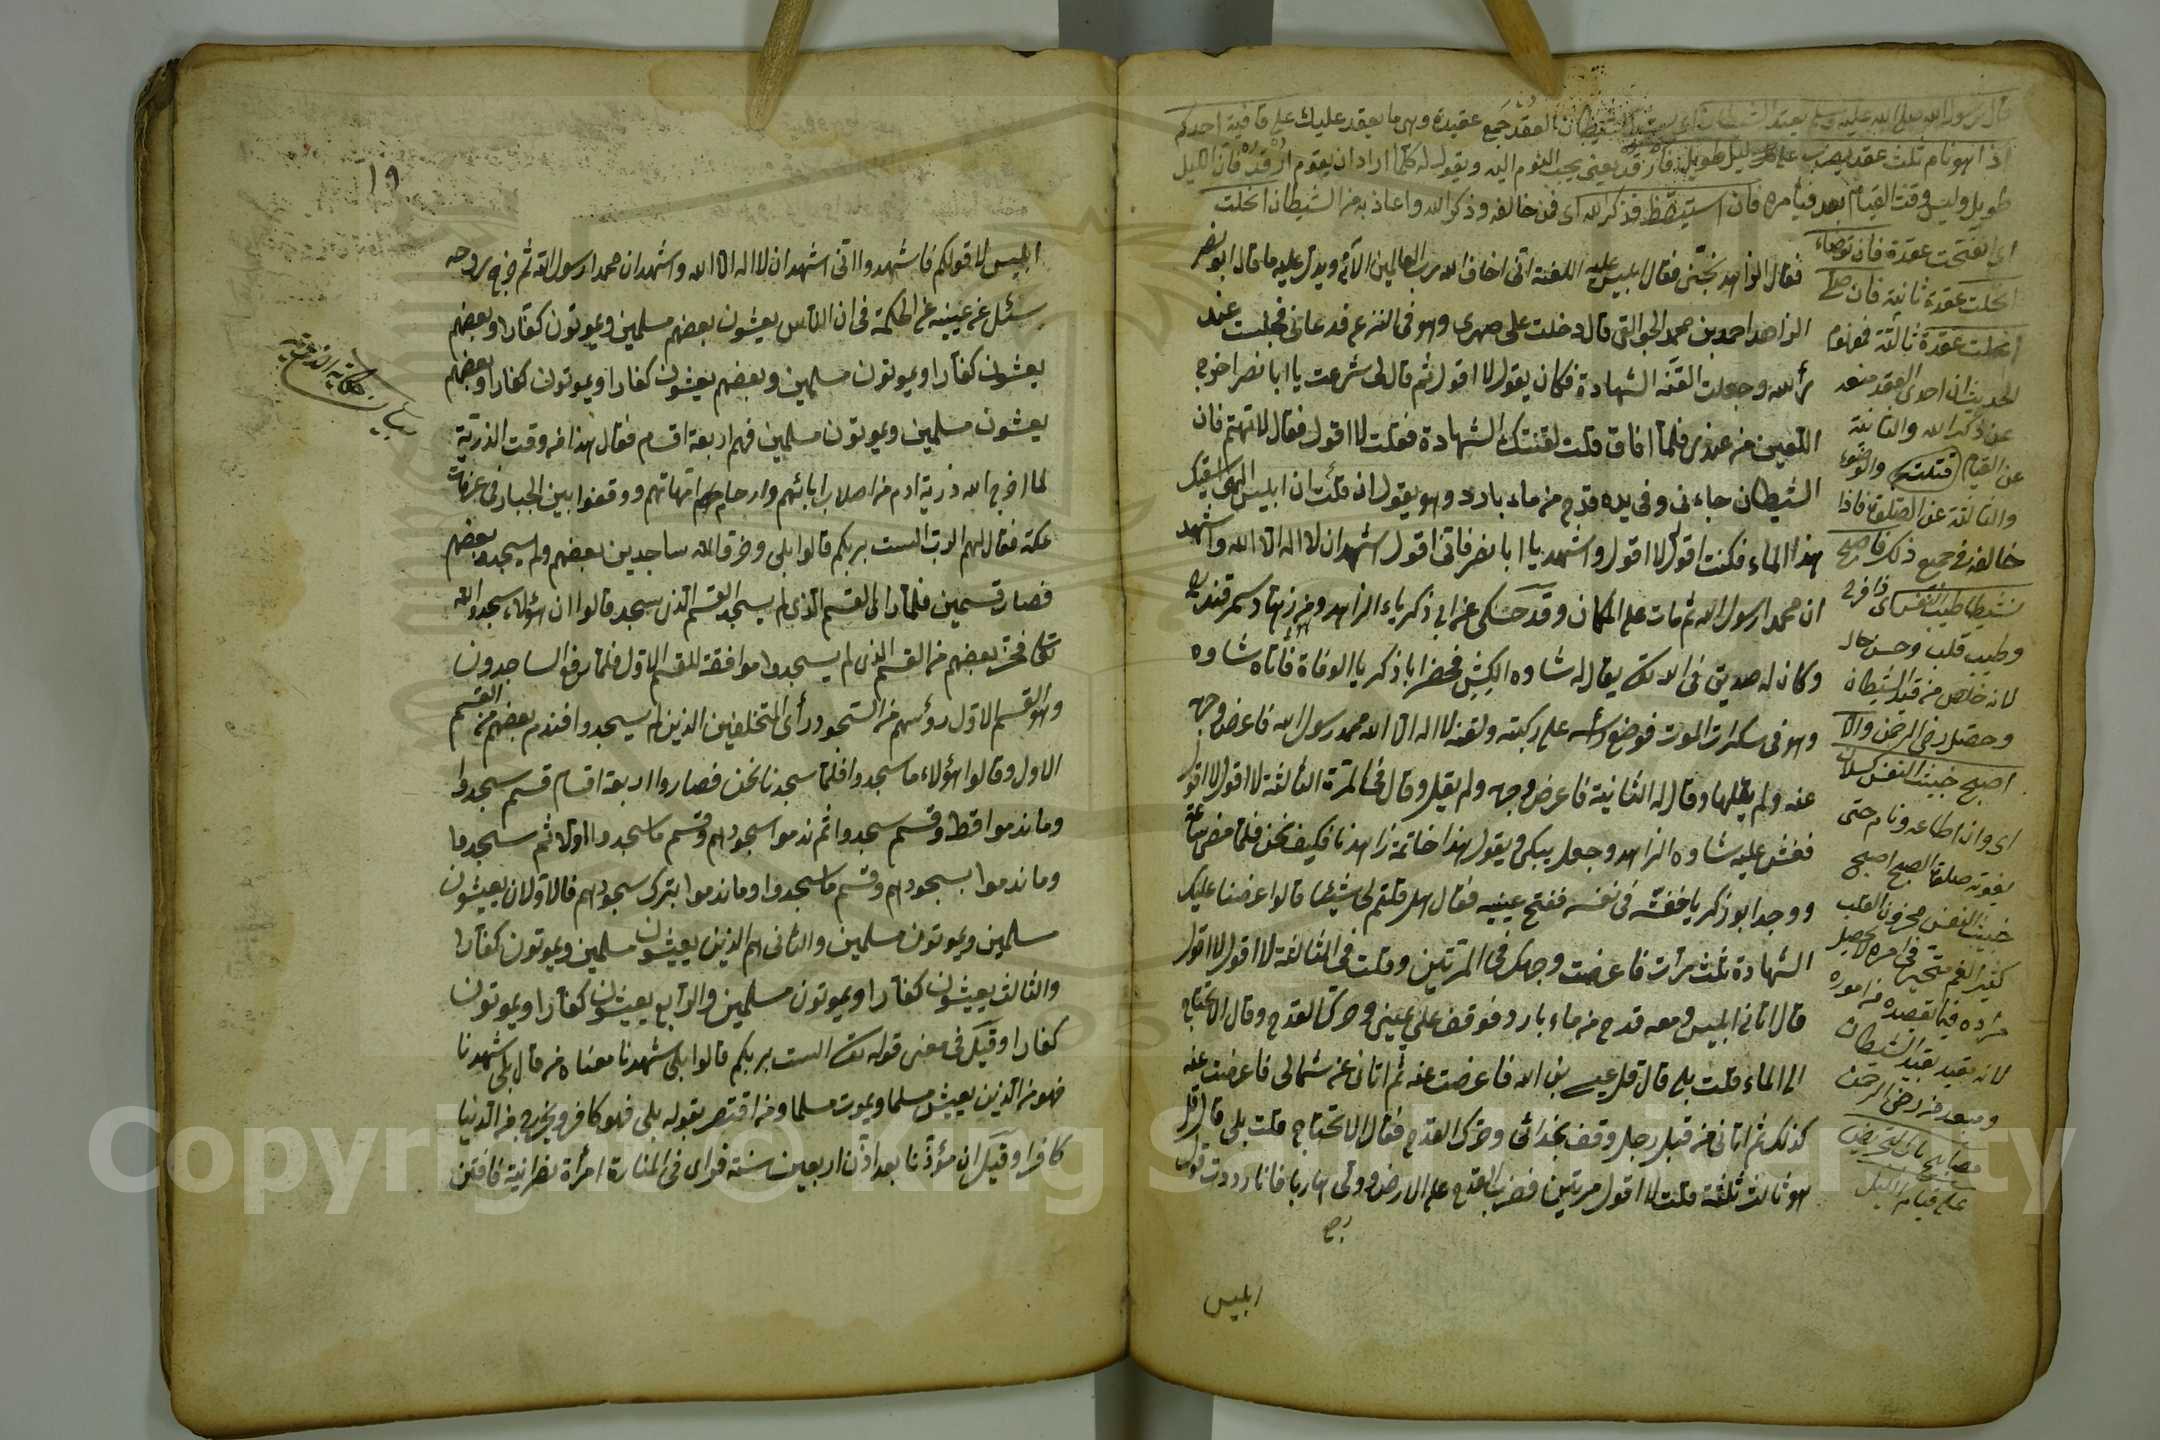 قال رسول الله صلى الله عليه وسلم يعقد الشيطان العقد جمع عقيدة وهى ما يعقد عليك على قافية احدكم
اذا هو نام ثلث عقد يضرب على ليل طويل فارقد يعنى يحبب النوم اليه ويقول له كلما اراد ان يقوم ارقد فان الليل
طويل وليس وقت القيام بعد فيأمره فان استيقظ فذكر الله اى فمن خالفه وذكر الله واعاذ به من الشيطان انحلت
اى انفتحت عقدة فان توضاء
انحلت عقدة ثانية فان صلى
انحلت عقدة ثالثة فمفهوم
الحديث ان احدى العقد منعه
عن ذكر الله والثانية
عن القيام والوضوء
والثالثة عن الصلوة فاذا
خالفه فى جميع ذلك فاصبح
نشيطا طيب النفس اى ذا فرح
وطيب قلب وحسن حال
لانه خلص من قيد الشيطان
وحصل رضى الرحمن والا
اصبح خبيث النفس كسلان
اى وان اطاعه ونام حتى
يفوته صلوة الصبح اصبح
خبيث النفس محزون القلب
كثير الغم متحير فى امره لا يحصل
مراده فيما يقصده من اموره
لانه مقيد بقيد الشيطان
ومبعد من رضى الرحمن
مصابيح باب التحريض
على قيام الليل
فقال الزاهد نجنى فقال ابليس عليه اللعنة انى اخاف الله رب العالمين الآية ويدل عليه ما قال ابو نصر
الزاهد احمد بن محمد الجوالقى قال دخلت على صهرى وهو فى النزع قد عانى فجلست عند
رأسه وجعلت القنه الشهادة فكان يقول لا اقول ثم قال لى شرعت يا ابا نصر اخرج
اللعين من عندى فلما افاق قلت لقنتك الشهادة فقلت لا اقول فقال لا تهتم فان
الشيطان جاءنى وفى يده قدح من ماء بارد وهو يقول ان قلت ان ابليس الهى اسقيك
هذا الماء فكنت اقول لا اقول واشهد يا ابا نصر فانى اقول اشهد ان لا اله الا الله واشهد
ان محمدا رسول الله ثم مات على المكان وقد حكى عن ابى ذكرياء الزاهد وهو من زهاد سمرقند
وكان له صديق فى الله تعالى يقال له شاوه الكشى فحضر ابا ذكريا الوفاة فأتاه شاوه
وهو فى سكرات الموت فوضع رأسه على ركبته ولقنه لا اله الا الله محمد رسول الله فاعرض وجهه
عنه ولم يقلها وقال له الثانية فاعرض وجهه ولم يقل وقال فى المرة الثالثة لا اقول لا اقول
فغشى عليه شاوه الزاهد وجعل يبكى ويقول هذا خاتمة زاهدنا فكيف نحن فلما مضى ساعة
ووجد ابو ذكريا خفة فى نفسه ففتح عينيه فقال هل قلتم لى شيئا قالوا عرضنا عليك
الشهادة ثلث مرات فاعرضت وجهك فى المرتين وقلت فى الثالثة لا اقول لا اقول
قال اتانى ابليس ومعه قدح من ماء بارد فوقف على يمينى وحرك القدح وقال الا تحتاج
الى الماء قلت بلى قال قل عيسى بن الله فاعرضت عنه ثم اتانى عن شمالى فاعرضت عنه
كذلك ثم اتانى من قبل رجلى وقف بحذائى وحرك القدح فقال الا تحتاج قلت بلى قال قل
هو ثالث ثلثة قلت لا اقول مرتين فضرب القدح على الارض وولى هاربا فانا رددت قول
ابليس
١٩
ابليس لا قولكم فاشهدوا انى اشهد ان لا اله الا الله واشهد ان محمدا رسول الله ثم خرج روحه
سئل عن عيينه عن الحكمة فى ان الناس يعيشون بعضهم مسلمين ويموتون كفارا وبعضهم
يعيشون كفارا ويموتون مسلمين وبعضهم يعيشون كفارا ويموتون كفارا وبعضهم
يعيشون مسلمين ويموتون مسلمين فهم اربعة اقسام فقال هذا من وقت الذرية
لما اخرج الله ذرية ادم من اصلاب ابائهم وارحام امهاتهم ووقفوا بين الجبار فى عرفات
مكة فقال لهم الرب الست بربكم قالوا بلى وخر قائله ساجدين بعضهم ولم يسجد بعضهم
فصار قسمين فلما رأى القسم الذى لم يسجد القسم الذى سجد قالوا ان هؤلاء سجدوا لله
تعالى فخر بعضهم من القسم الذى لم يسجدوا موافقة للقسم الاول فلما رفع الساجدون
وهو القسم الاول رؤسهم من السجود رأى المتخلفين الذين لم يسجدوا فندم بعضهم من القسم
الاول وقالوا هؤلاء ما سجدوا فلما سجدنا نحن فصاروا اربعة اقسام قسم سجدوا
وما ندموا قط وقسم سجدوا ثم ندموا سجودهم وقسم ما سجدوا اولا ثم سجدما
وما ندموا بسجودهم وقسم ما سجدوا وما ندموا بترك سجودهم فالاولان يعيشون
مسلمين ويموتون مسلمين والثانى هم الذين يعيشون مسلمين ويموتون كفارا
والثالث يعيشون كفارا ويموتون مسلمين والرابع يعيشون كفارا ويموتون
كفارا وقيل فى معنى قوله تعالى الست بربكم قالوا بلى شهدنا معناه من قال بلى شهدنا
فهو من الذين يعيش مسلما ويموت مسلما ومن اقتصر بقوله بلى فهو كافر ويخرج من الدنيا
كافرا وقيل ان مؤذنا بعد اذن اربعين سنة فرأى فى المنارة امرأة نصرانية فافتتن
بيان حكاية الذرية